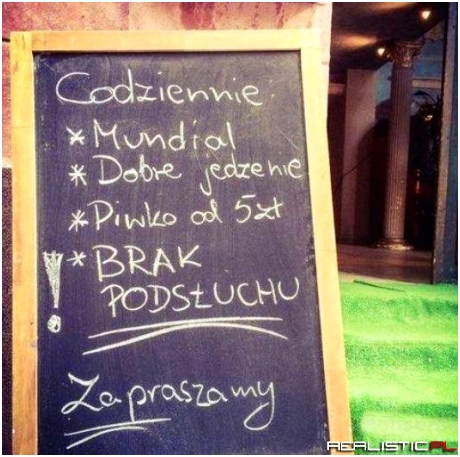 Codziennie:
* Mundial
* Dobre jedzenie
* Piwko od 5zł
! * BRAK
PODSŁUCHU
Zapraszamy
REALISTICPL